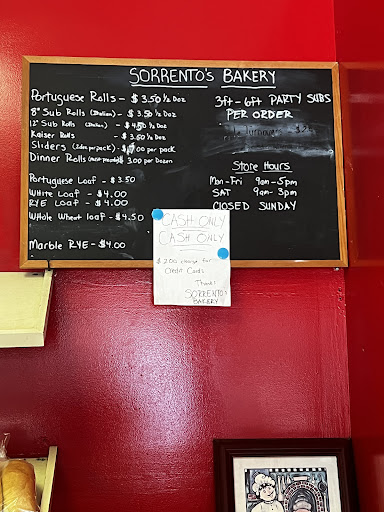 SORRENTO'S BAKERY
Portuguese Rolls - $3.50 ½ Doz
8" Sub Rolls (Italian) - $3.50 ½ Doz
12" Sub Rolls (Italian) - $4.50 ½ Doz
Kaiser Rolls - $3.50 ½ Doz
Sliders per pack
Dinner Rolls 3.00 per Dozen
Portuguese Loaf - $3.50
White Loaf - $4.00
RYE Loaf - $4.00
Whole Wheat loaf - $4.50
Marble RYE - $4.00
3ft - 6ft PARTY SUBS
PER ORDER
Store Hours
Mon-Fri 9am-5pm
SAT 9am-3pm
CLOSED SUNDAY
CASH ONLY
CASH ONLY
$2.00 charge for
Credit Cards
Thanks
SORRENTO'S
BAKERY